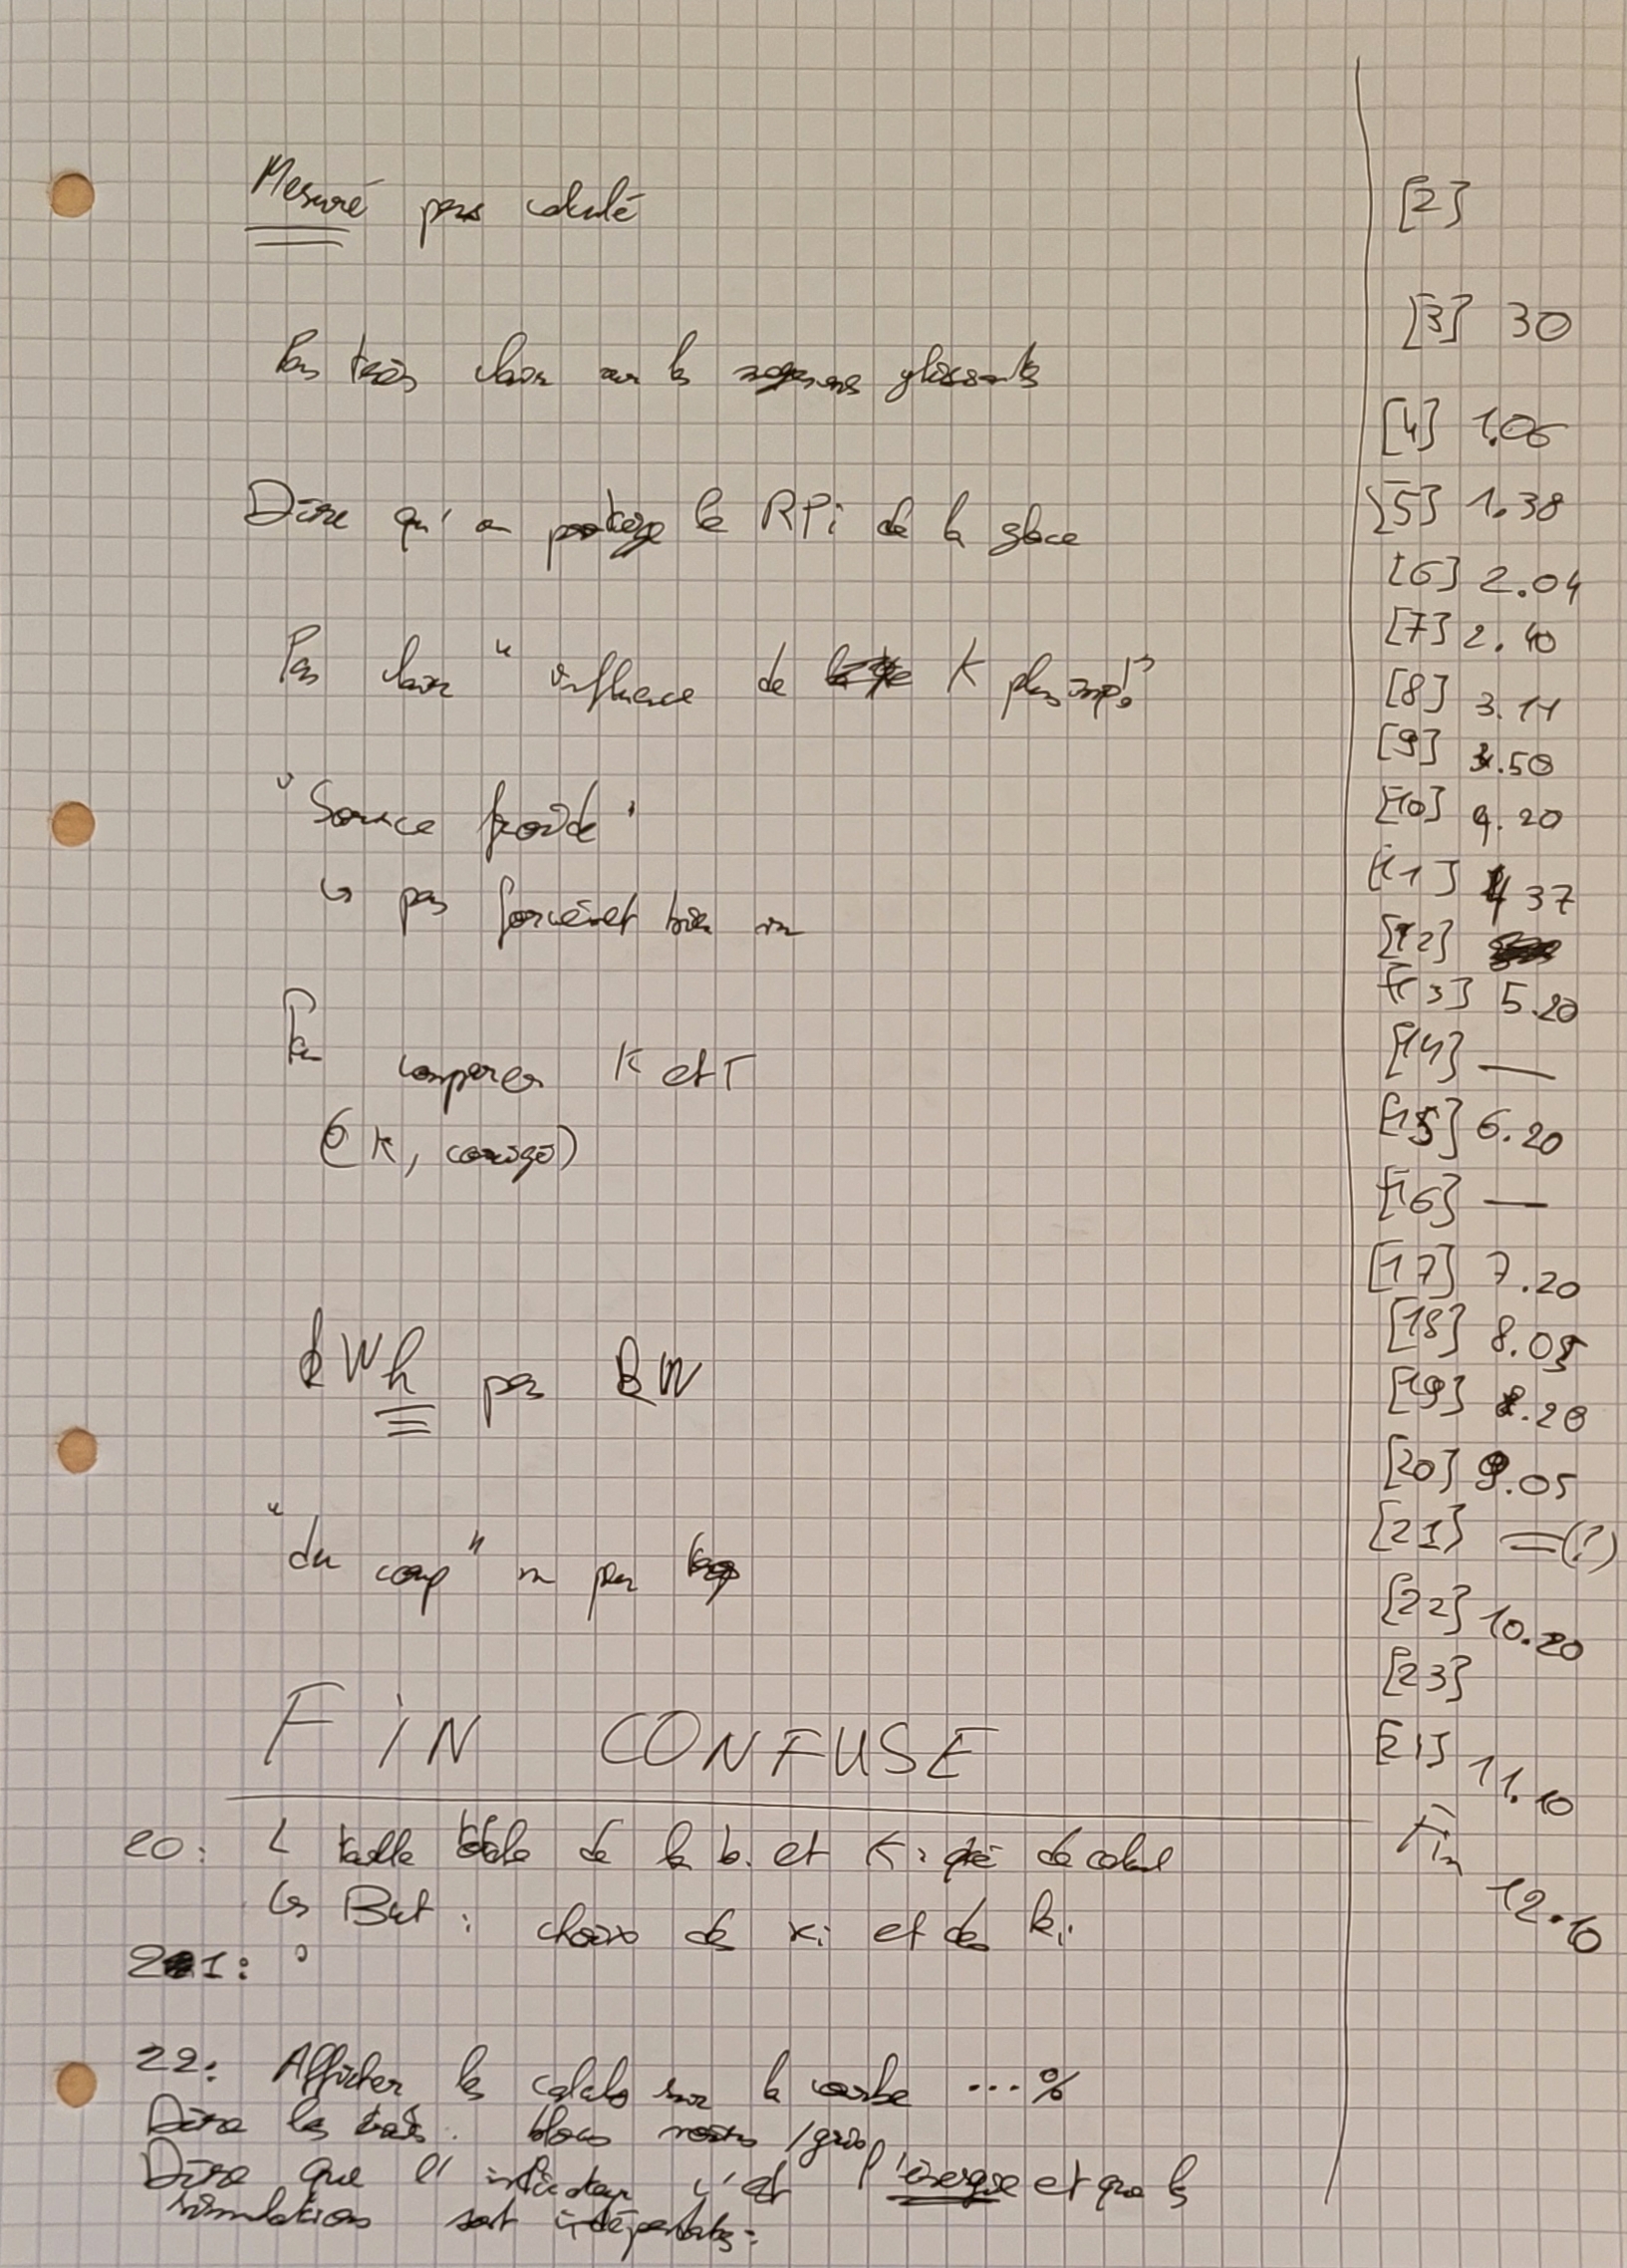 Mesuré pas calculé
Pas très clair sur les moyennes glissantes
Dire qu'on protège le RPi de la glace
Pas clair "influence de K plus imp!"
"Source froide"
↳ pas forcément bien vu
Pas comparer K et T
(6 K, corrigé)
kWh pas kW
"du coup" un peu
FIN CONFUSE
20: L taille totale de la b. et K: de calcul
↳ But: choix de xi et des ki
21:
22: Afficher les calculs sur la courbe ...%
Dire les traits. blocs noirs/gris
Dire que l'indicateur c'est l'énergie et que les
simulations sont indépendantes:
[2]
[3] 30
[4] 1.06
[5] 1.38
[6] 2.04
[7] 2.40
[8] 3.11
[9] 3.50
[10] 4.20
[11] 4 37
[12]
[13] 5.20
[14] —
[15] 6.20
[16] —
[17] 7.20
[18] 8.05
[19] 8.20
[20] 9.05
[21] =(?)
[22] 10.20
[23]
[21] 11.10
Fin 12.10